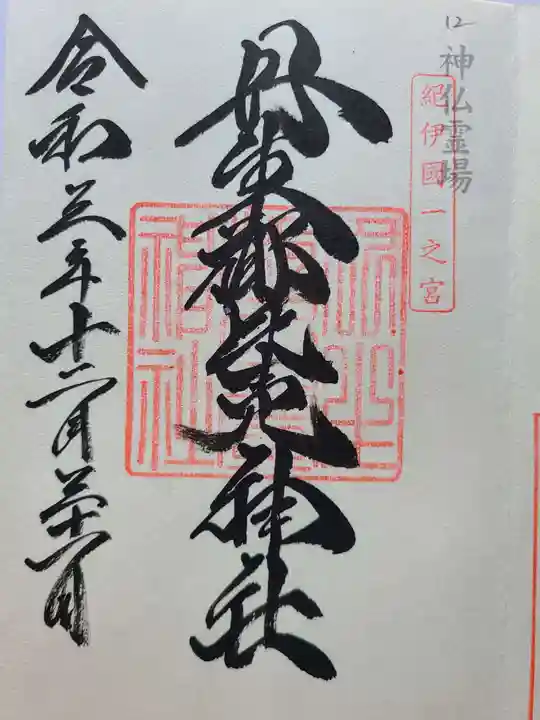 12
神仏霊場
紀伊國一之宮
丹生都比売神社
令和三年十二月二十一日